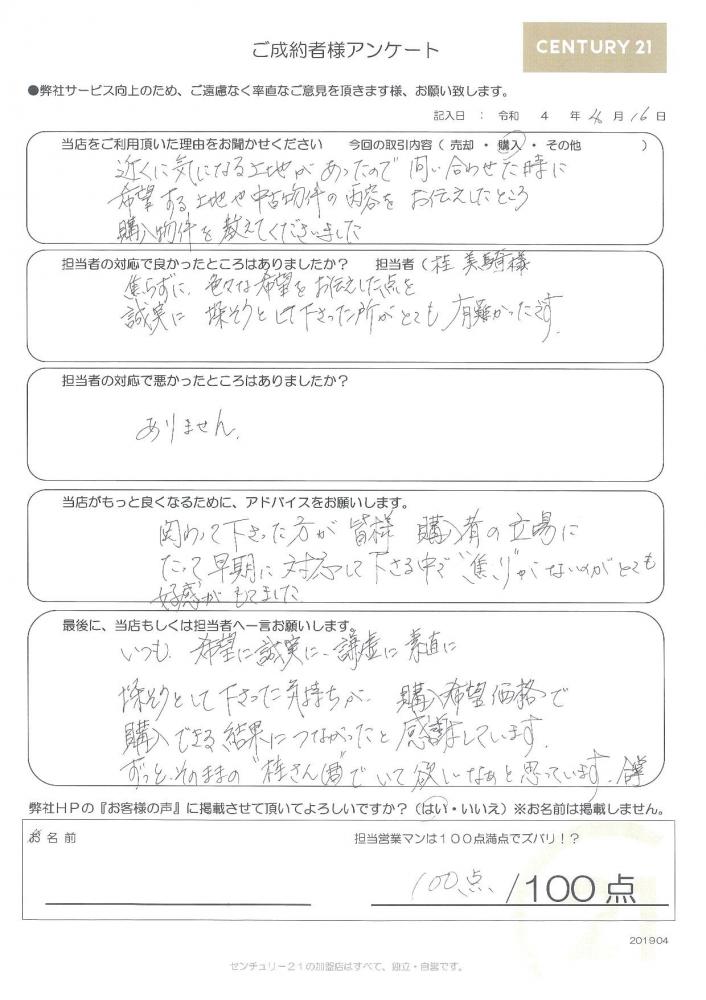 ご成約者様アンケート
CENTURY 21
●弊社サービス向上のため、ご遠慮なく率直なご意見を頂きます様、お願い致します。
記入日 : 令和 4 年 4 月 16 日
当店をご利用頂いた理由をお聞かせください 今回の取引内容 ( 売却 ・ 購入 ・ その他 )
近くに気になる土地があったので 問い合わせた時に
希望する土地や中古物件の内容を お伝えしたところ
購入物件を教えてくださいました
担当者の対応で良かったところはありましたか? 担当者 ( 桂 美騎様
焦らずに、色々な希望をお伝えした点を
誠実に 探そうとして下さった所がとても 有難かったです
担当者の対応で悪かったところはありましたか?
ありません。
当店がもっと良くなるために、アドバイスをお願いします。
関わって下さった方が 皆様 購入者の立場に
たって早期に対応して下さる中で"焦り"がないのがとても
好感がもてました
最後に、当店もしくは担当者へ一言お願いします。
いつも、希望に誠実に、謙虚に 素直に
探そうとして下さった気持ちが、購入希望価格で
購入できる結果につながったと感謝しています。
ずっと、そのままの"桂さん"でいて欲しいなぁと思っています。
弊社HPの『お客様の声』に掲載させて頂いてよろしいですか? (はい・いいえ) ※お名前は掲載しません。
お名前
担当営業マンは100点満点でズバリ!?
100点 /100点
201904
センチュリー21の加盟店はすべて、独立・自営です。